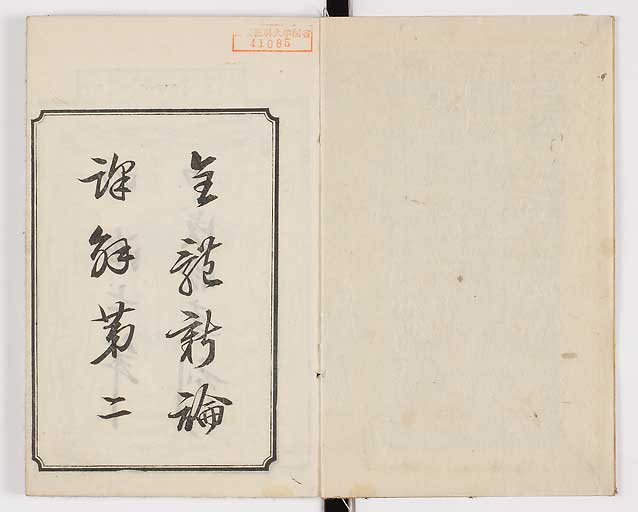 全體新論
譯解第二
41085